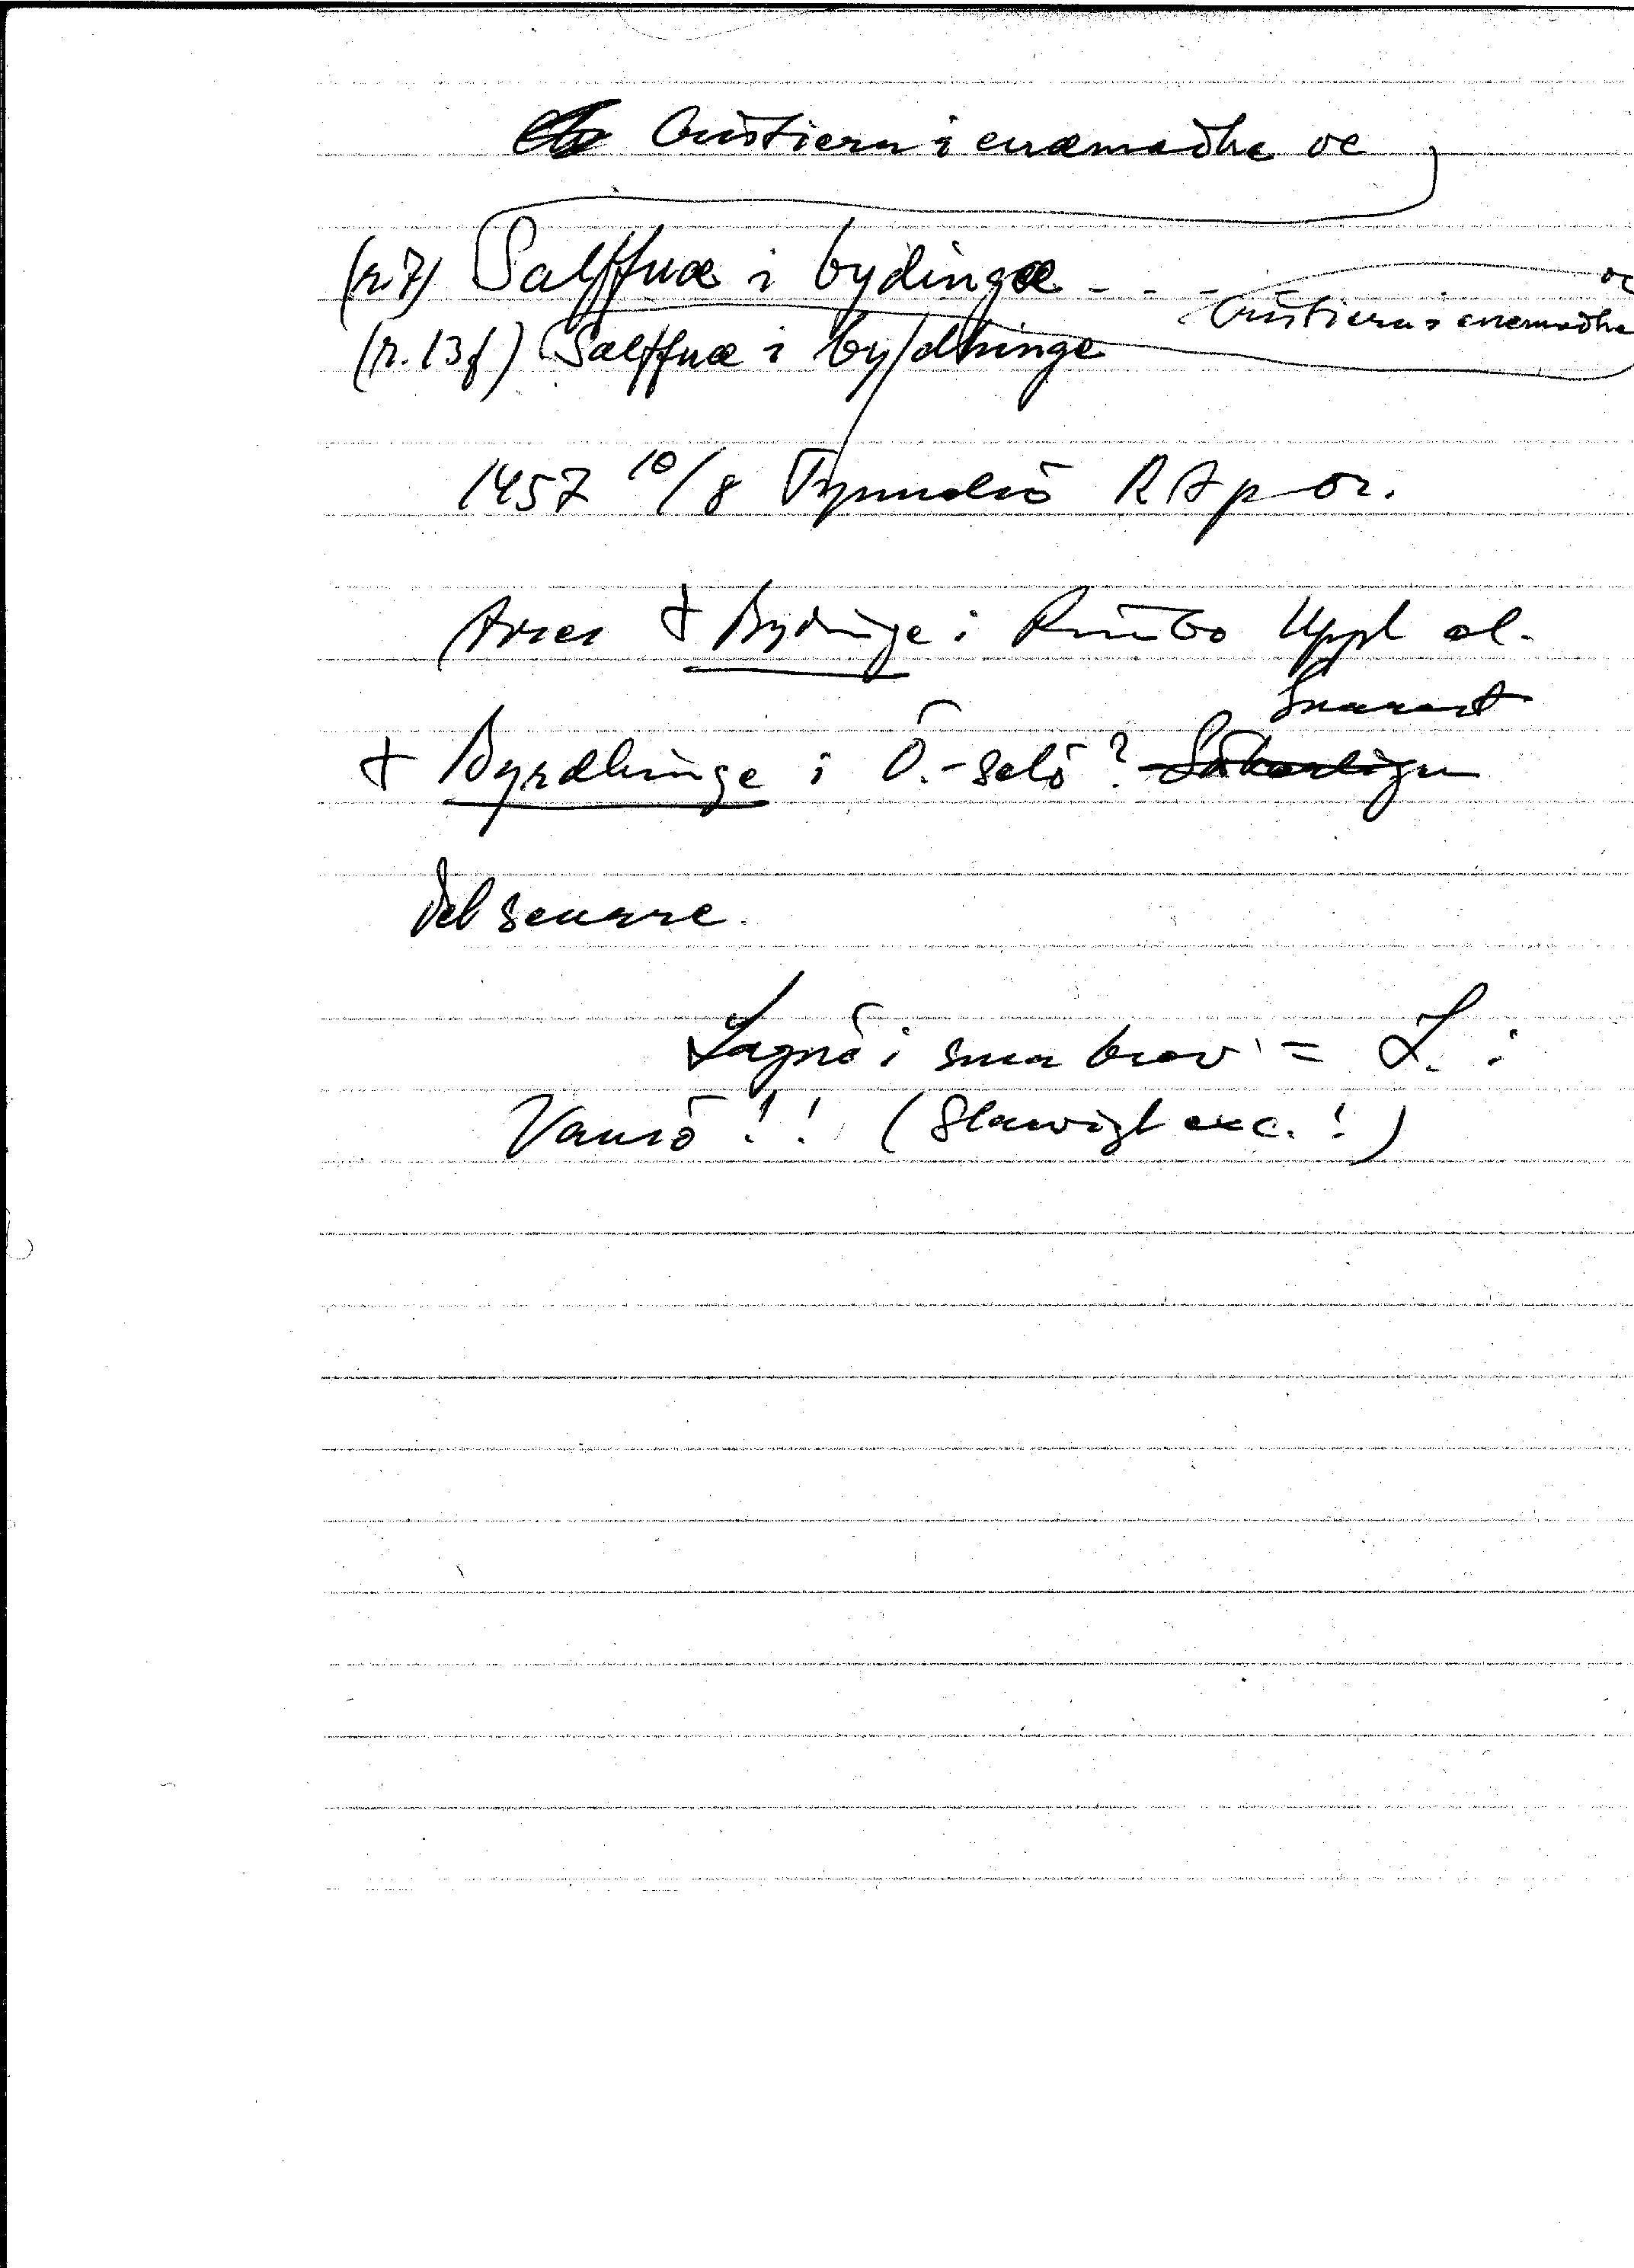 Cristiern i enæmadhe oc
(r.7) Salffuæ i bydingæ - - -
oc
Cristiern i enemadhe
(r. 13 f) Salffuæ i by/dhinge
1457 10/8 Tynnelsö RAp or.
Avser † Bydinge i Rimbo Uppl el.
Snarast
† Byrdhinge i Ö.-Selö? Säkerligen
det senare.
Lagnö i sma brev = L. i
Vansö!! (Styrvigt exc.!)